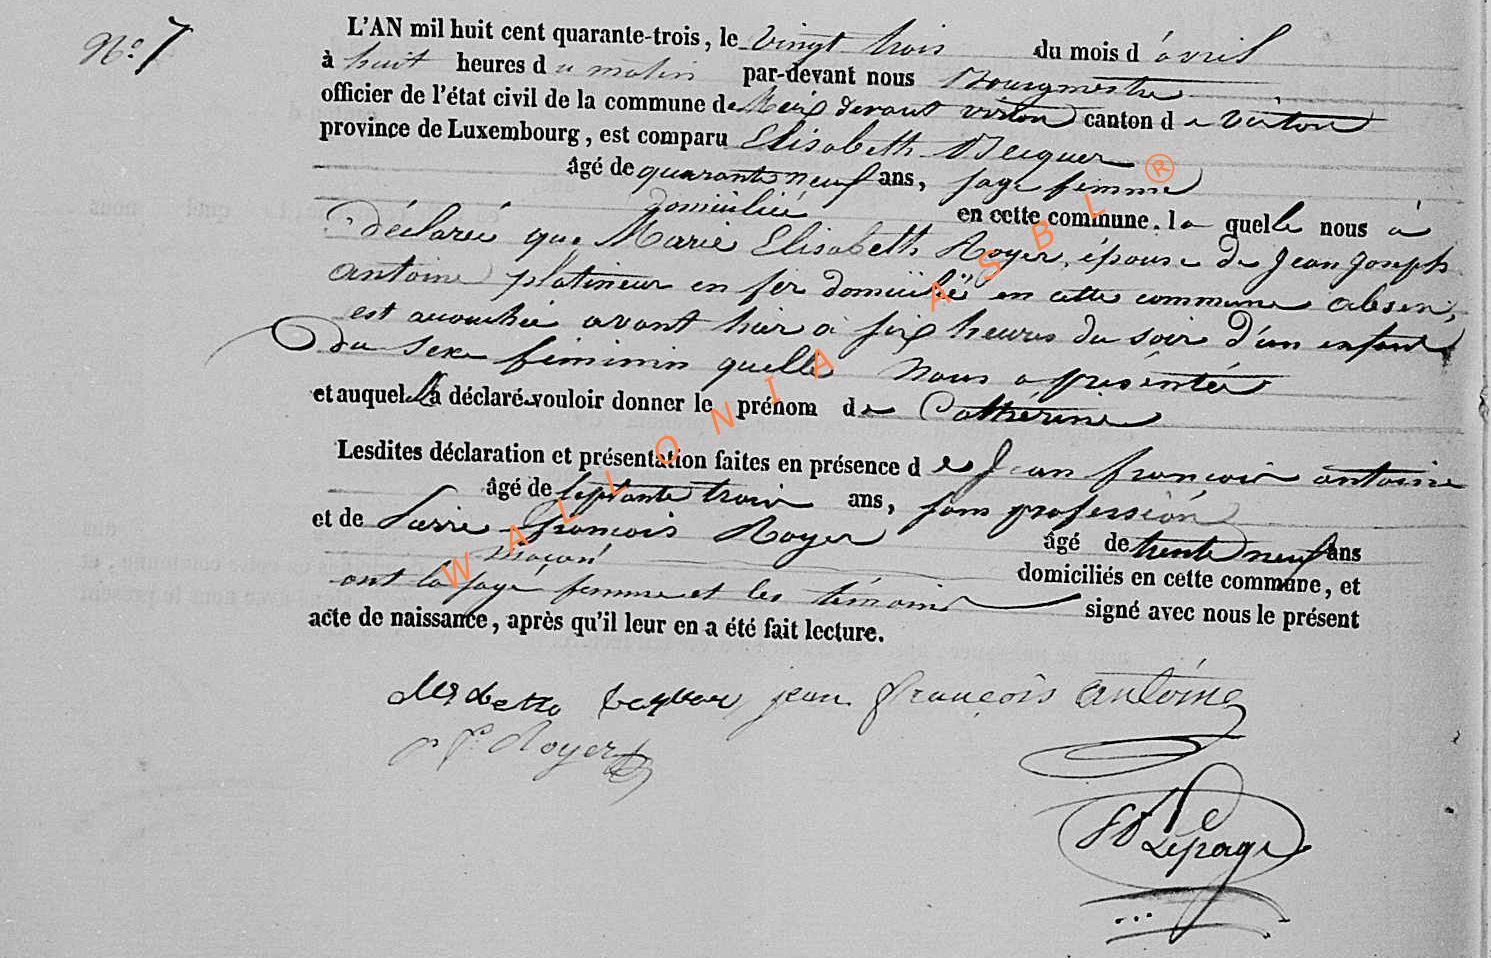 N° 7
L'AN mil huit cent quarante-trois, le vingt trois du mois d'avril
à huit heures du matin par-devant nous Bourgmestre
officier de l'état civil de la commune de Meix devant virton canton de Virton
province de Luxembourg, est comparu Elisabeth Becquer
âgé de quarante neuf ans, sage femme
domiciliée en cette commune. la quelle nous à
déclarée que Marie Elisabeth Royer, épouse de Jean Joseph
antoine platineur en fer domicilié en cette commune absent,
est accouchée avant hier à six heures du soir d'un enfant
du sexe féminin quelle nous a présentée
et auquel elle a déclaré vouloir donner le prénom de Cathérine
Lesdites déclaration et présentation faites en présence de Jean francois antoine
âgé de septante trois ans, sans profession
et de francois Royer âgé de trente neuf ans
maçon domiciliés en cette commune, et
ont la sage femme et les témoins signé avec nous le présent
acte de naissance, après qu'il leur en a été fait lecture.
jean françois antoine
Royer
Lepage
WALLONIA ASBL ®